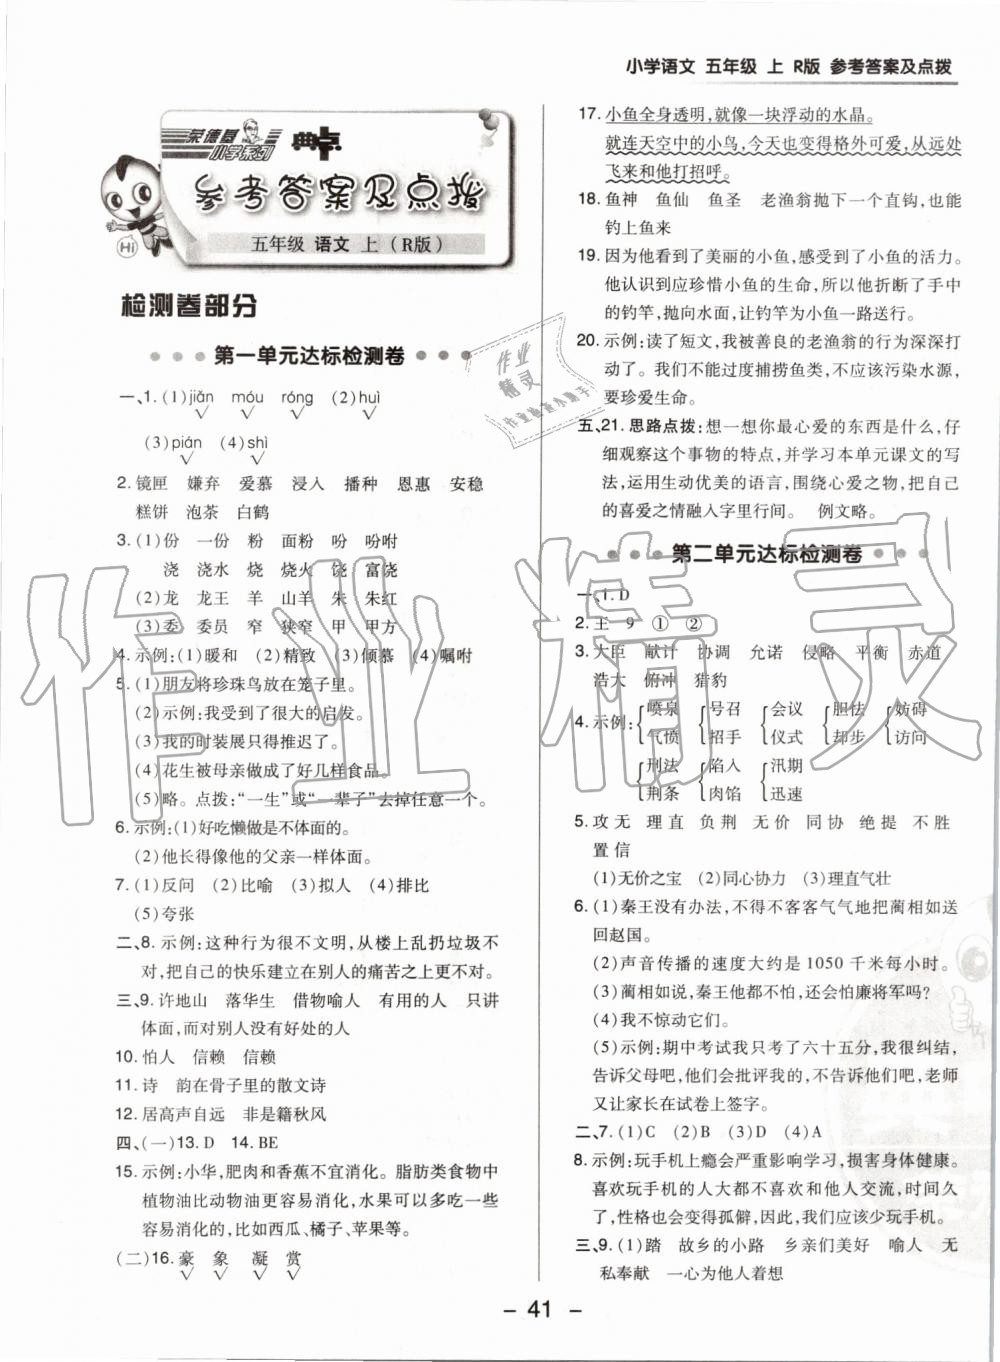 小学语文 五年级 上 R版 参考答案及点拨
荣德基
小学系列
典点
参考答案及点拨
五年级 语文 上（R版）
Hi
检测卷部分
第一单元达标检测卷
一、1. (1)jiǎn móu róng (2)huì
√ √ √
(3)pián (4)shì
√ √
2. 镜匣 嫌弃 爱慕 浸入 播种 恩惠 安稳
糕饼 泡茶 白鹤
3. (1)份 一份 粉 面粉 吩 吩咐
浇 浇水 烧 烧火 饶 富饶
(2)龙 龙王 羊 山羊 朱 朱红
(3)委 委员 窄 狭窄 甲 甲方
4. 示例:(1)暖和 (2)精致 (3)倾慕 (4)嘱咐
5. (1)朋友将珍珠鸟放在笼子里。
(2)示例:我受到了很大的启发。
(3)我的时装展只得推迟了。
(4)花生被母亲做成了好几样食品。
(5)略。点拨:“一生”或“一辈子”去掉任意一个。
6. 示例:(1)好吃懒做是不体面的。
(2)他长得像他的父亲一样体面。
7. (1)反问 (2)比喻 (3)拟人 (4)排比
(5)夸张
二、8. 示例:这种行为很不文明,从楼上乱扔垃圾不
对,把自己的快乐建立在别人的痛苦之上更不对。
三、9. 许地山 落华生 借物喻人 有用的人 只讲
体面,而对别人没有好处的人
10. 怕人 信赖 信赖
11. 诗 韵在骨子里的散文诗
12. 居高声自远 非是籍秋风
四、(一)13. D 14. BE
15. 示例:小华,肥肉和香蕉不宜消化。脂肪类食物中
植物油比动物油更容易消化,水果可以多吃一些
容易消化的,比如西瓜、橘子、苹果等。
(二)16. 豪 象 凝 赏
√ √ √ √
17. 小鱼全身透明,就像一块浮动的水晶。
就连天空中的小鸟,今天也变得格外可爱,从远处
飞来和他打招呼。
18. 鱼神 鱼仙 鱼圣 老渔翁抛下一个直钩,也能
钓上鱼来
19. 因为他看到了美丽的小鱼,感受到了小鱼的活力。
他认识到应珍惜小鱼的生命,所以他折断了手中
的钓竿,抛向水面,让钓竿为小鱼一路送行。
20. 示例:读了短文,我被善良的老渔翁的行为深深打
动了。我们不能过度捕捞鱼类,不应该污染水源,
要珍爱生命。
五、21. 思路点拨:想一想你最心爱的东西是什么,仔
细观察这个事物的特点,并学习本单元课文的写
法,运用生动优美的语言,围绕心爱之物,把自己
的喜爱之情融入字里行间。 例文略。
第二单元达标检测卷
一、1. D
2. 王 9 ① ②
3. 大臣 献计 协调 允诺 侵略 平衡 赤道
浩大 俯冲 猎豹
4. 示例: 喷泉 号召 会议 胆怯 妨碍
气愤 招手 仪式 却步 访问
刑法 陷入 汛期
荆条 肉馅 迅速
5. 攻 无 理 直 负 荆 无 价 同 协 绝 提 不 胜
置 信
(1)无价之宝 (2)同心协力 (3)理直气壮
6. (1)秦王没有办法,不得不客客气气地把蔺相如送
回赵国。
(2)声音传播的速度大约是 1050 千米每小时。
(3)蔺相如说,秦王我都不怕,还会怕廉将军吗?
(4)我不惊动它们。
(5)示例:期中考试我只考了六十五分,我很纠结,
告诉父母吧,他们会批评我的,不告诉他们吧,老师
又让家长在试卷上签字。
二、7. (1)C (2)B (3)D (4)A
8. 示例:玩手机上瘾会严重影响学习,损害身体健康。
喜欢玩手机的人大都不喜欢和他人交流,时间久
了,性格也会变得孤僻,因此,我们应该少玩手机。
三、9. (1)踏 故乡的小路 乡亲们美好 喻人 无
私奉献 一心为他人着想
– 41 –
作业精灵
作业
精灵
作业检查小助手